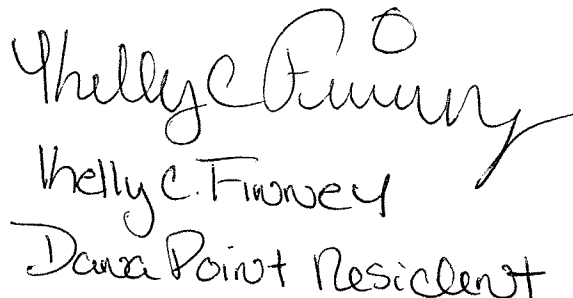 Khelly C Finney
Khelly C. Finney
Dana Point Resident